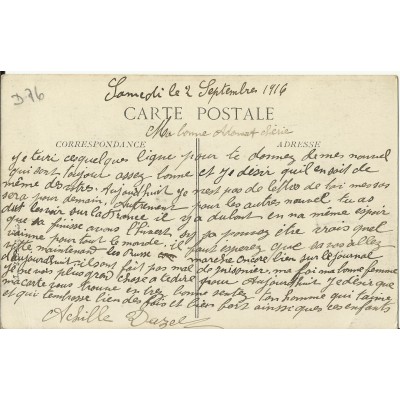 376
Samedi le 2 Septembres 1916
CARTE POSTALE
Ma bonne chérie
CORRESPONDANCE ADRESSE
je tecri ce quelques ligne pour te donnez de mes nouvel
qui sont toujour assez bonne et je desir quil en soit de
même des votres. Aujourdhuit je nest pas de lettres de toi mes sa
sera pour demain. Autrement pour les autres nouvel tu as
dut les voir sur la France il y a du bont en na même espoir
que sa finisse avons l'hivert si sa pouvez être vrais quel
pour tout le monde, il faut esperer que sa vos allez
vite maintenant les Russe marche encore bien sur le journal
d'aujourdhuit il sont fait pas mal de prisonnier, ma foi ma bonne femme
je ne vois plus gran chose a te dire pour Aujourdhuit je desir que
ma carte vous trouve en tres bonne santez ton homme qui taime
et qui tembrasse bien des fois et bien fort ainsi que ces enfants
Achille